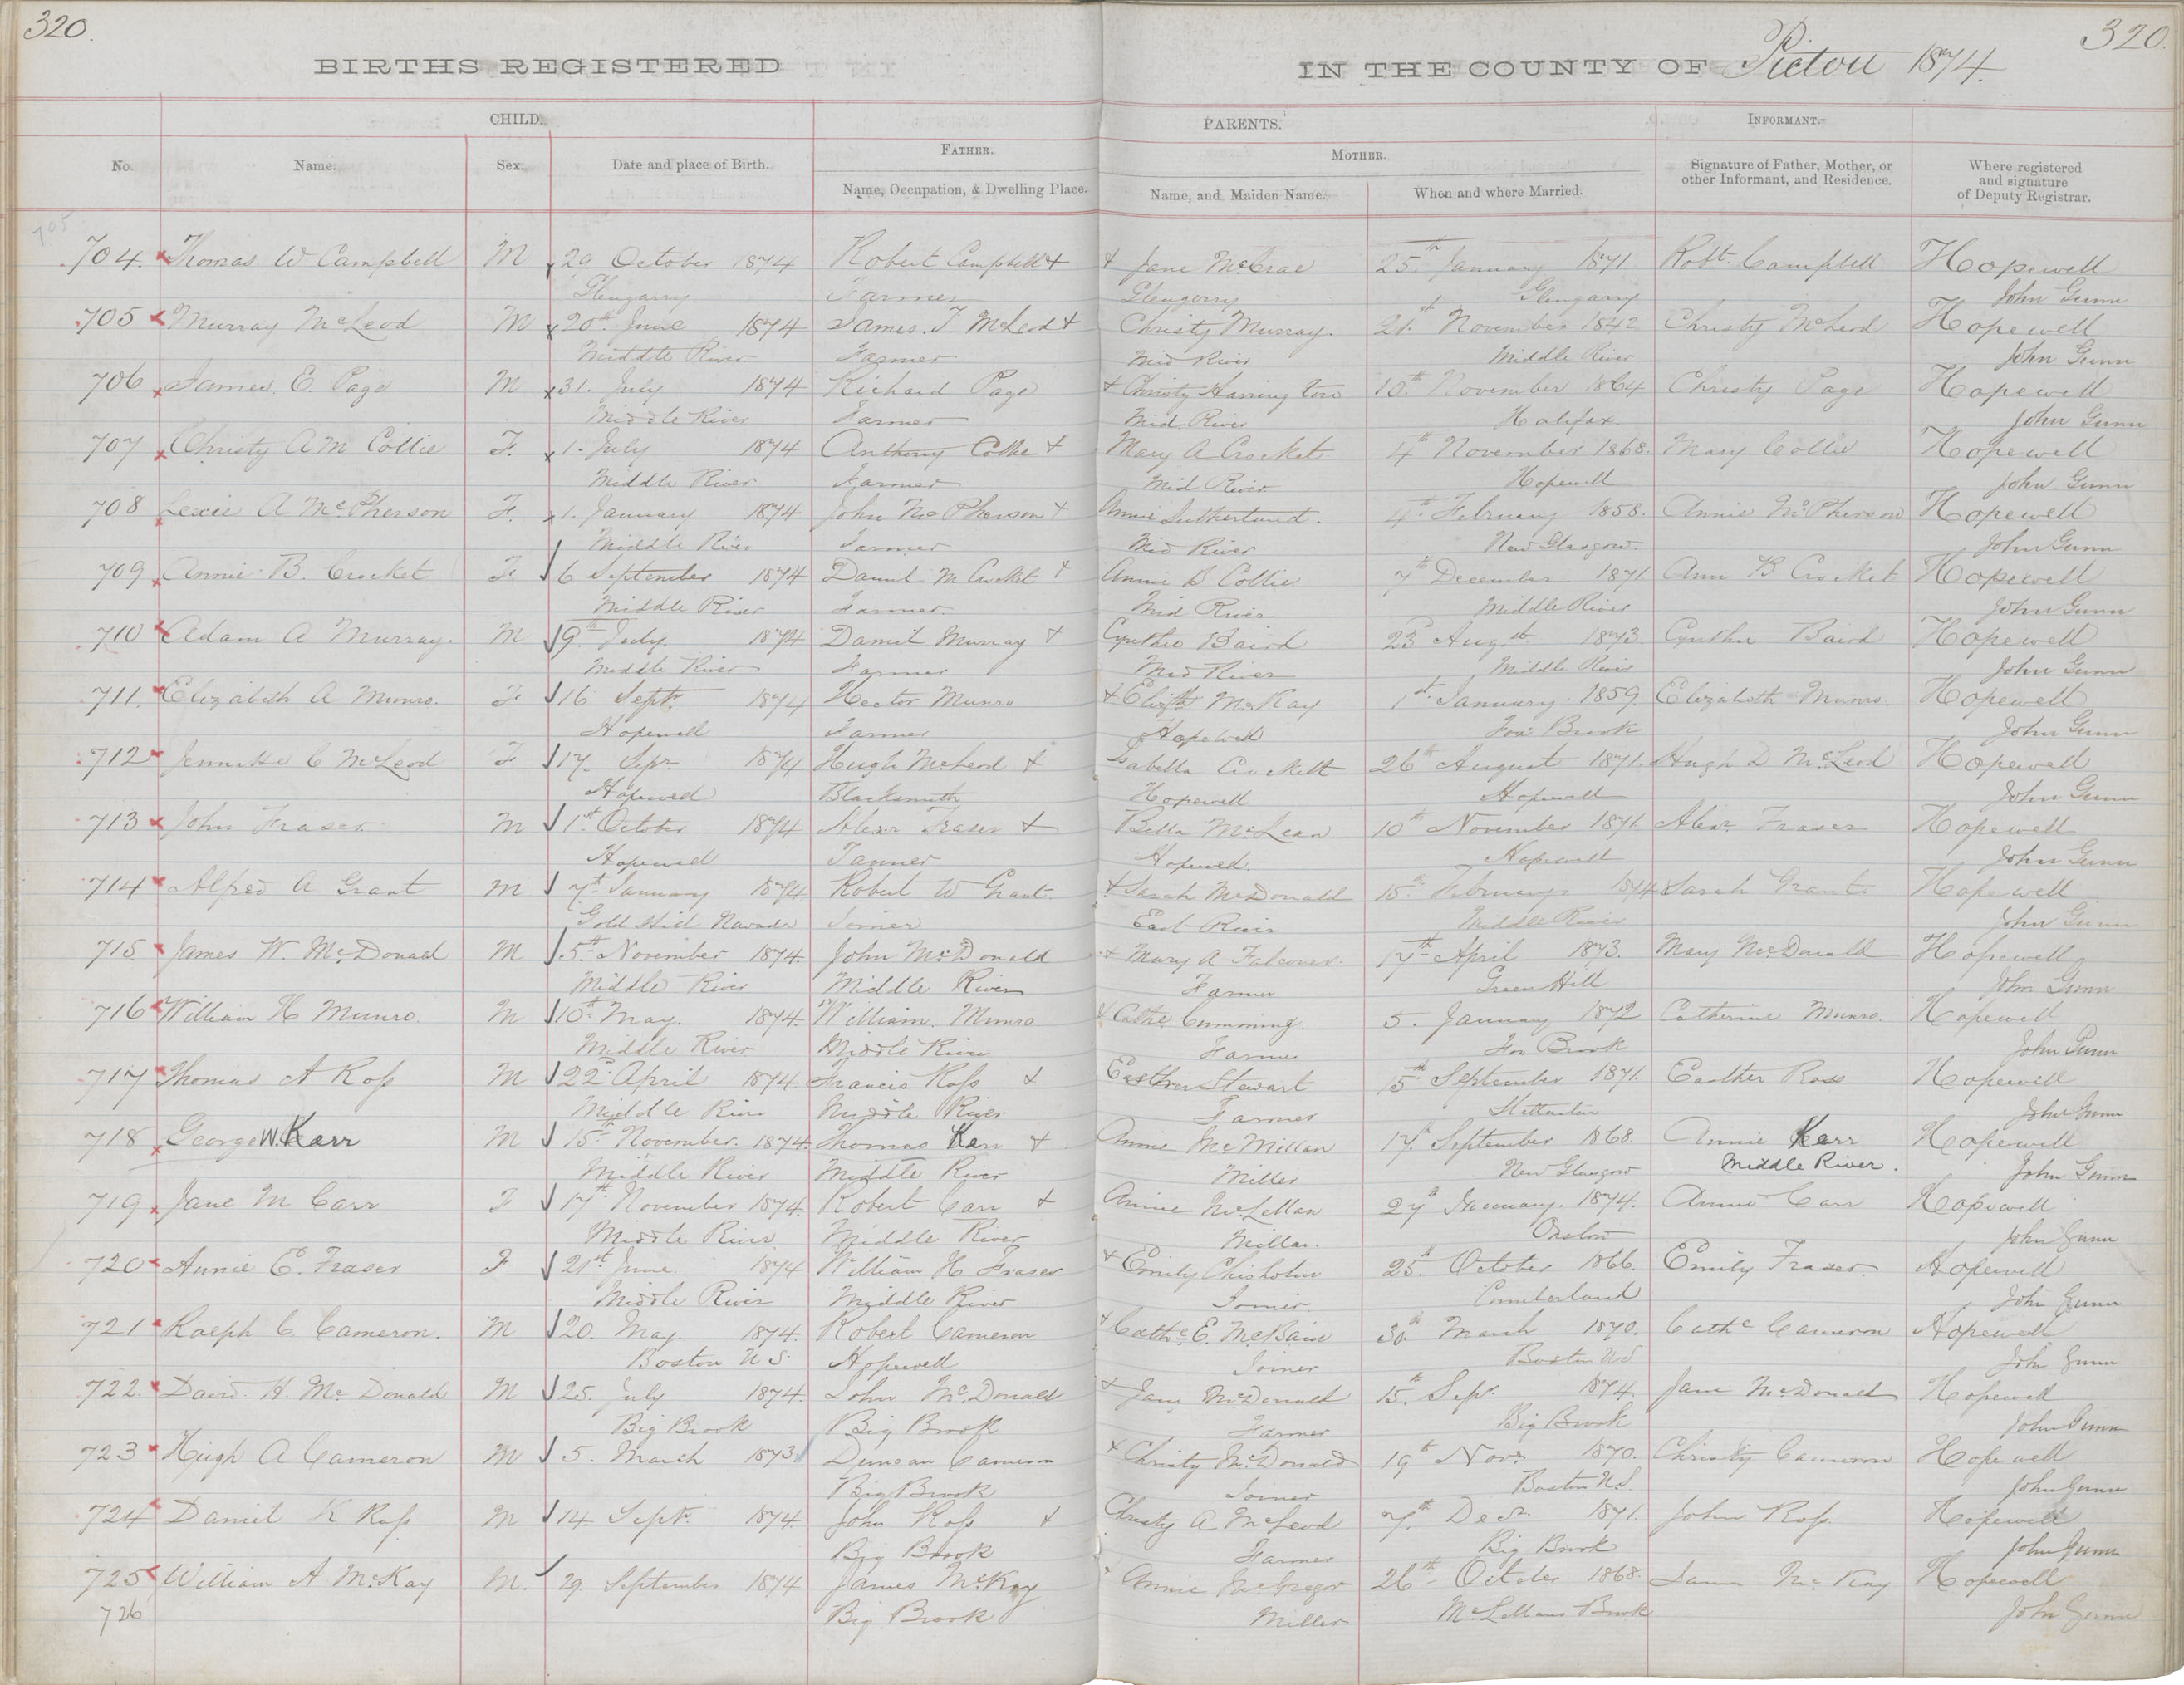 320. 320.
BIRTHS REGISTERED IN THE COUNTY OF Pictou 1874.
CHILD. PARENTS. INFORMANT.
No. Name. Sex. Date and place of Birth. FATHER. MOTHER. Signature of Father, Mother, or other Informant, and Residence. Where registered and signature of Deputy Registrar.
Name, Occupation, & Dwelling Place. Name, and Maiden Name. When and where Married.
705
704. Thomas W Campbell M 29 October 1874 Robert Campbell + + Jane McCrae 25th January 1871 Robt. Campbell Hopewell
Glengarry Farmer Glengerry Glengarry John Gunn
705 Murray McLeod M 20th June 1874 James. F. McLeod + Christy Murray. 21st November 1842 Christy McLeod Hopewell
Middle River Farmer Mid River Middle River John Gunn
706 James. E Page M 31. July 1874 Richard Page + Christy Harrington 10th November 1864 Christy Page Hopewell
Middle River Farmer Mid River Halifax. John Gunn
707 Christy A M Collie F. 1. July 1874 Anthony Collie + Mary A Crocket 4th November 1868. Mary Collie Hopewell
Middle River Farmer Mid River Hopewell John Gunn
708 Lexie A McPherson F. 1. January 1874 John McPherson + Annie Sutherland. 4th February 1858. Annie McPherson Hopewell
Middle River Farmer Mid River New Glasgow. John Gunn
709 Annie B. Crocket F 6 September 1874 Daniel M Crocket + Annie B Collie 7th December 1871. Ann B Crocket Hopewell
Middle River Farmer. Mid River. Middle River John Gunn
710 Adam A Murray. M 9th July. 1874 Daniel Murray + Cynthia Baird 23d Augst 1873. Cynthia Baird Hopewell
Middle River Farmer Mid River Middle River John Gunn
711. Elizabeth A Munro. F 16 Septr. 1874 Hector Munro + Elizth McKay 1st January 1859. Elizabeth Munro. Hopewell
Hopewell Farmer Hopewell Fox Brook John Gunn
712 Jennette C McLeod F 17. Sepr 1874 Hugh McLeod + Isabella Crockett 26th August 1871. Hugh D McLeod Hopewell
Hopewell Blacksmith Hopewell Hopewell John Gunn
713 John Fraser M 1st October 1874 Alexr Fraser + Bella McLean 10th November 1871. Alexr. Fraser Hopewell
Hopewell Tanner Hopewell. Hopewell John Gunn
714 Alfred A Grant M 7th January 1874 Robert W Grant. + Sarah McDonald 15th February 1874 Sarah Grant Hopewell
Gold Hill Navada Joiner East River Middle River John Gunn
715. James W. McDonald M 5th November 1874. John McDonald + Mary A Falconer. 17th April 1873. Mary McDonald Hopewell
Middle River Middle River Farmer Green Hill John Gunn
716 William H Munro. M 10th May. 1874. William. Munro + Cathe Cumming. 5. January 1872 Catherine Munro. Hopewell
Middle River Middle River Farmer Fox Brook John Gunn
717 Thomas A Ross M 22d April 1874. Francis Ross + Easther Stewart 15th September 1871. Easther Ross Hopewell
Middle River Middle River Farmer John Gunn
718 George W. Kerr M 15th November. 1874. Thomas Kerr + Annie McMillan 17th September 1868. Annie Kerr Hopewell
Middle River Middle River Miller New Glasgow Middle River. John Gunn
719 Jane M Carr F 17th November 1874. Robert Carr + Annie McLellan 27th January. 1874. Annie Carr Hopewell
Middle River Middle River Onslow John Gunn
720 Annie E. Fraser F 21st June. 1874 William H Fraser + Emily Chisholm 25th October 1866. Emily Fraser. Hopewell
Middle River Middle River Joiner. Cumberland John Gunn
721 Ralph C. Cameron. M 20. May. 1874. Robert Cameron + Cathe. E. McBain 30th March 1870. Cathe Cameron Hopewell
Boston U S. Hopewell Joiner Boston U S John Gunn
722. David. H. McDonald M 25. July 1874. John McDonald + Jane McDonald 15th Sepr. 1874. Jane McDonald Hopewell
Big Brook Big Brook Farmer Big Brook John Gunn
723 Hugh A Cameron M 5. March 1873 Duncan Cameron + Christy McDonald 19th Novr. 1870. Christy Cameron Hopewell
Big Brook Joiner Boston U.S. John Gunn
724 Daniel K Ross M 14. Septr. 1874. John Ross + Christy A McLeod 7th Decr. 1871. John Ross. Hopewell
Big Brook Farmer Big Brook John Gunn
725 William A McKay M. 29. September 1874 James McKay Annie McGregor 26th October 1868. James McKay Hopewell
726 Big Brook Miller McLellans Brook John Gunn